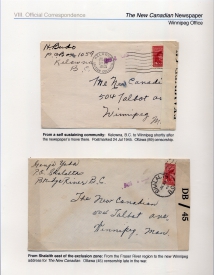 VIII. Official Correspondence
The New Canadian Newspaper
Winnipeg Office
P.O. Box 1059
Kelowna
B.C.
The New Canadian
504 Talbot Ave
Winnipeg
From a self sustaining community: Kelowna, B.C. to Winnipeg shortly after
the newspaper's move there. Postmarked 24 Jul 1945. Ottawa censorship
Shalalth
Bridge River, B.C.
The New Canadian
504 Talbot Ave,
Winnipeg, Man.
DB / 45
From Shalalth east of the exclusion zone: From the Fraser River region to the new Winnipeg
address for The New Canadian. Ottawa censorship late in the war.